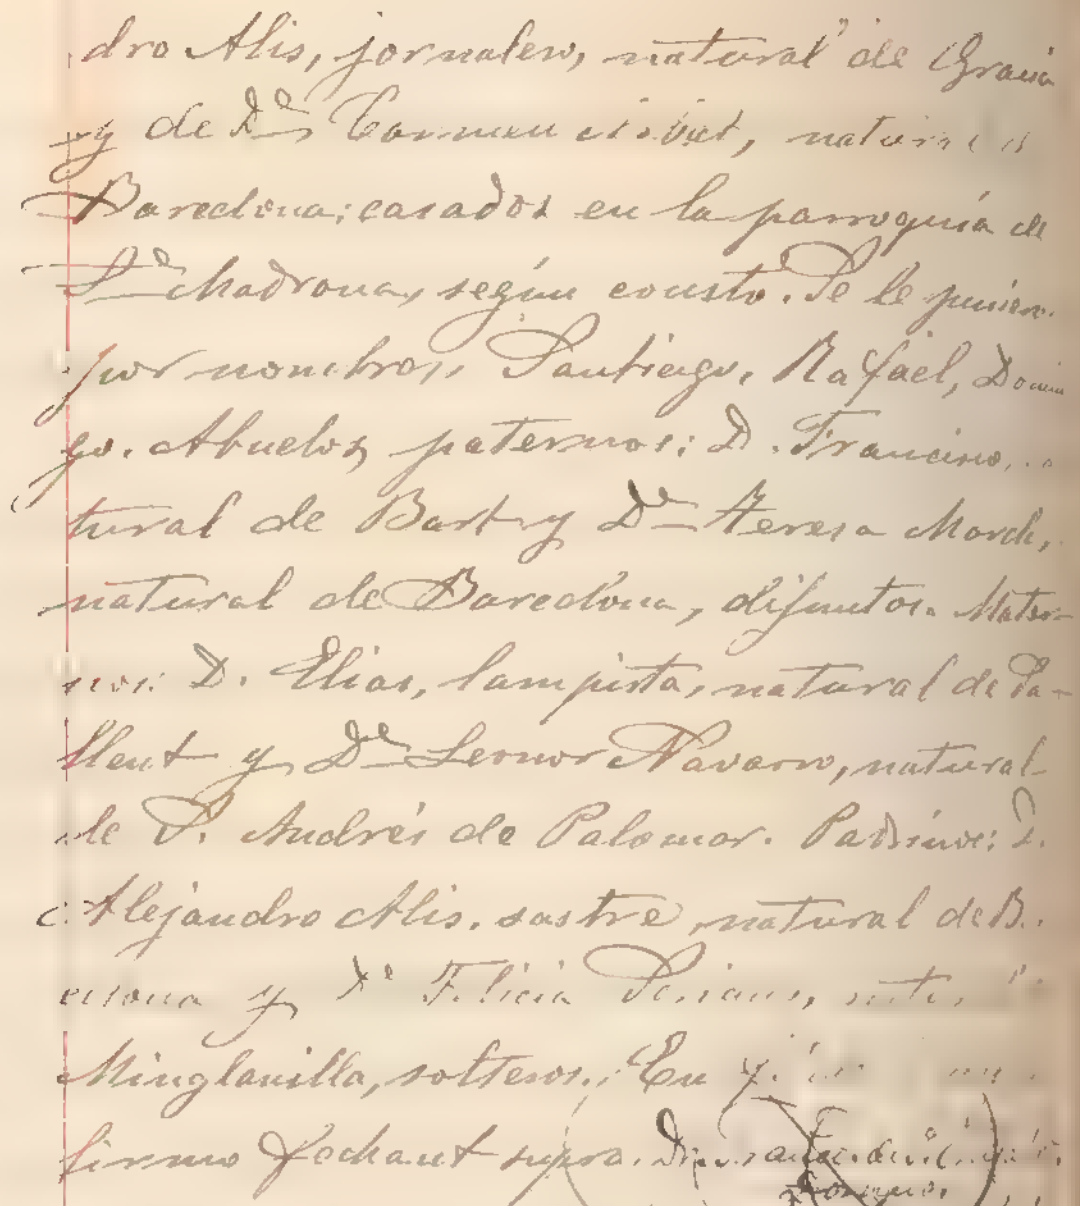 dro Alis, jornalero, natural de Gracia
y de Dª Carmen
Barcelona; casados en la parroquia de
Sta Madrona, según consta. Se le pusieron
por nombres, Santiago, Rafael, Domin
go. Abuelos paternos: D. Francisco,
tural de Bart y Dª Teresa March,
natural de Barcelona, difuntos. Mater-
nos: D. Elias, lampista, natural de Sa-
llent y Dª Leonor Navarro, natural
de S. Andrés de Palomar. Padrinos: D.
Alejandro Alis, sastre, natural de B.
celona y Dª Felicia
Minglanilla, solteros. En
firmo fecha ut supra.